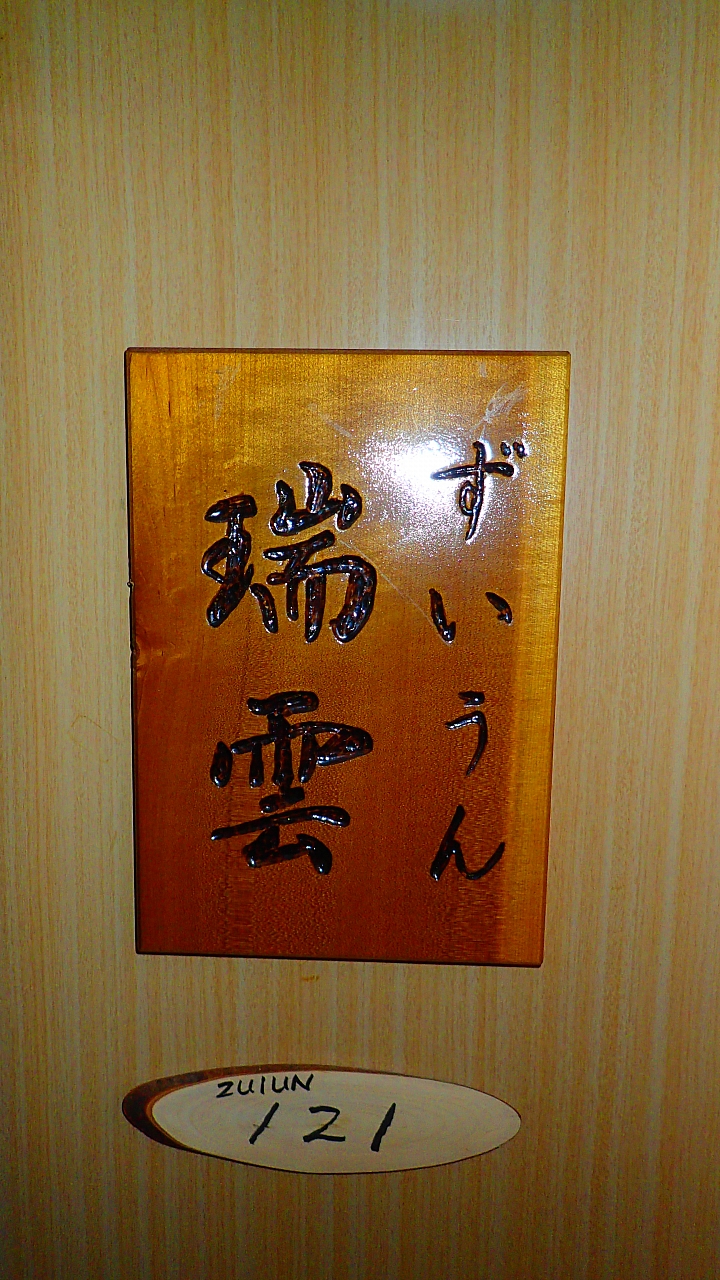 ずいうん
瑞雲
ZUIUN
121